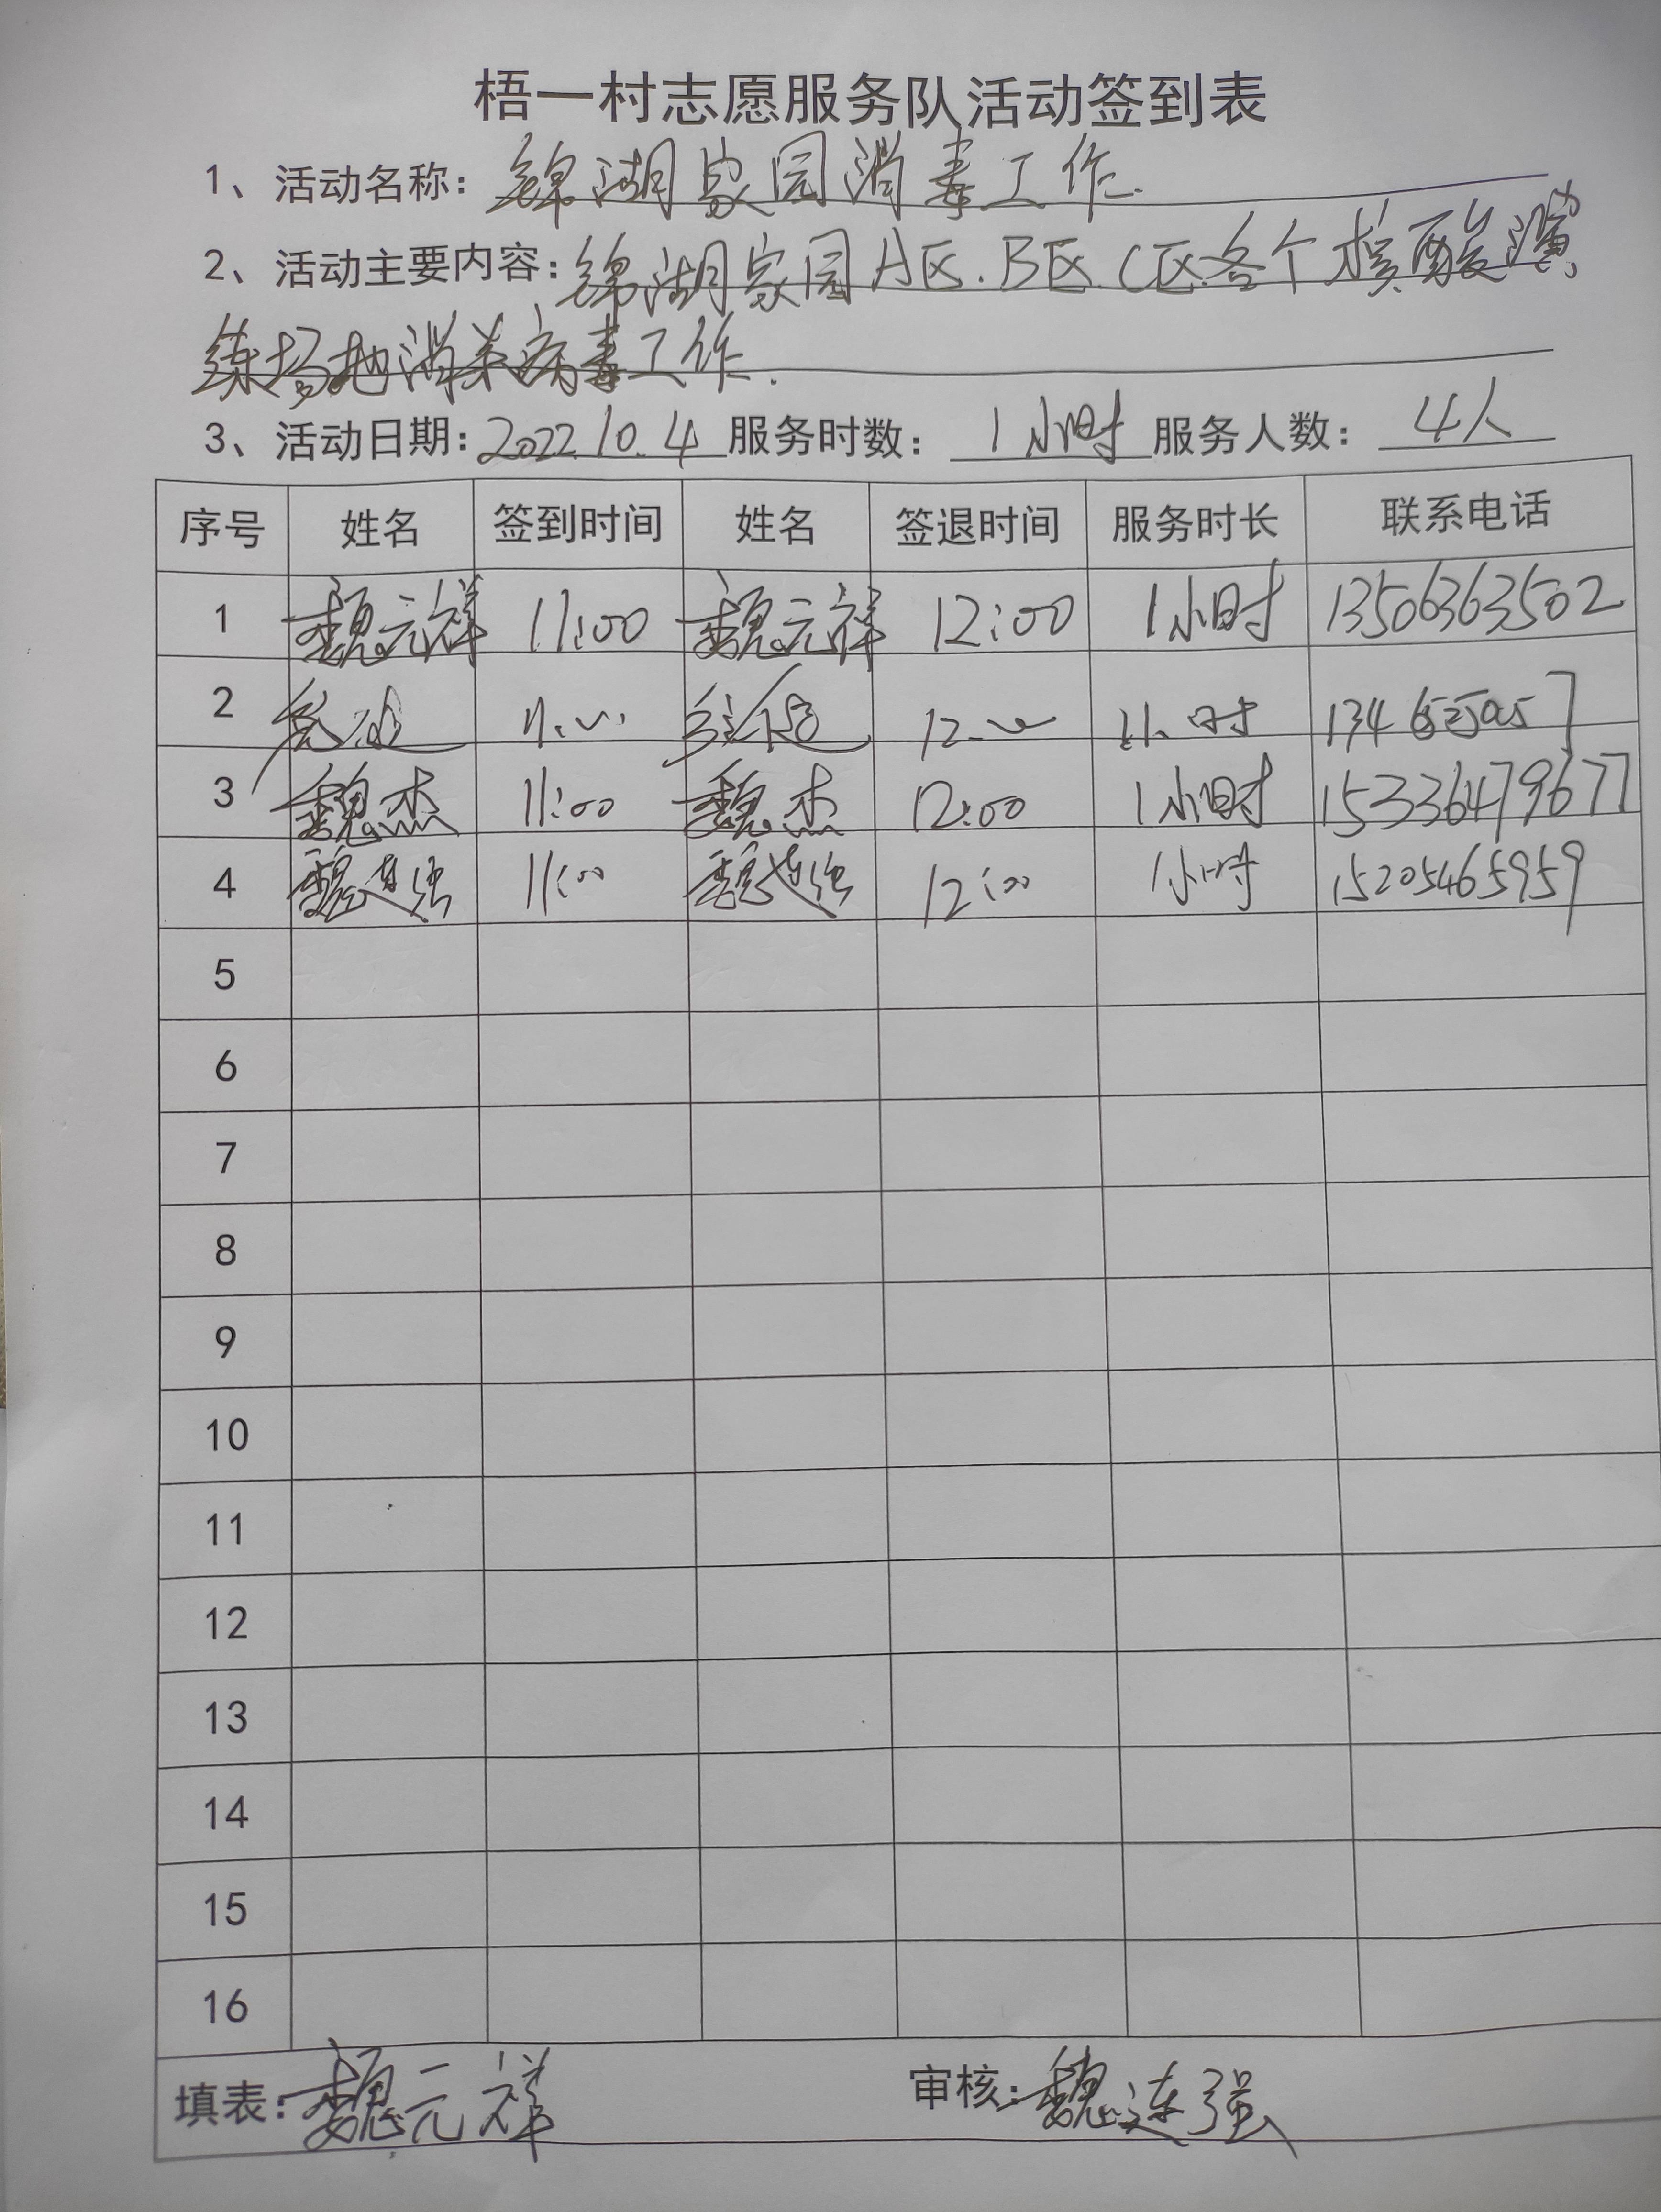 梧一村志愿服务队活动签到表
1、活动名称：锦湖家园消毒工作.
2、活动主要内容：锦湖家园A区.B区.C区各个核酸演
练场地消杀病毒工作.
3、活动日期：2022.10.4 服务时数：1小时 服务人数：4人
序号 姓名 签到时间 姓名 签退时间 服务时长 联系电话
1 魏元祥 11:00 魏元祥 12:00 1小时 13506363502
2 12.00 时
3 魏杰 11:00 魏杰 12:00 1小时 15336479677
4 魏连强 11:00 魏连强 12:00 1小时 15205465959
5
6
7
8
9
10
11
12
13
14
15
16
填表：魏元祥 审核：魏连强